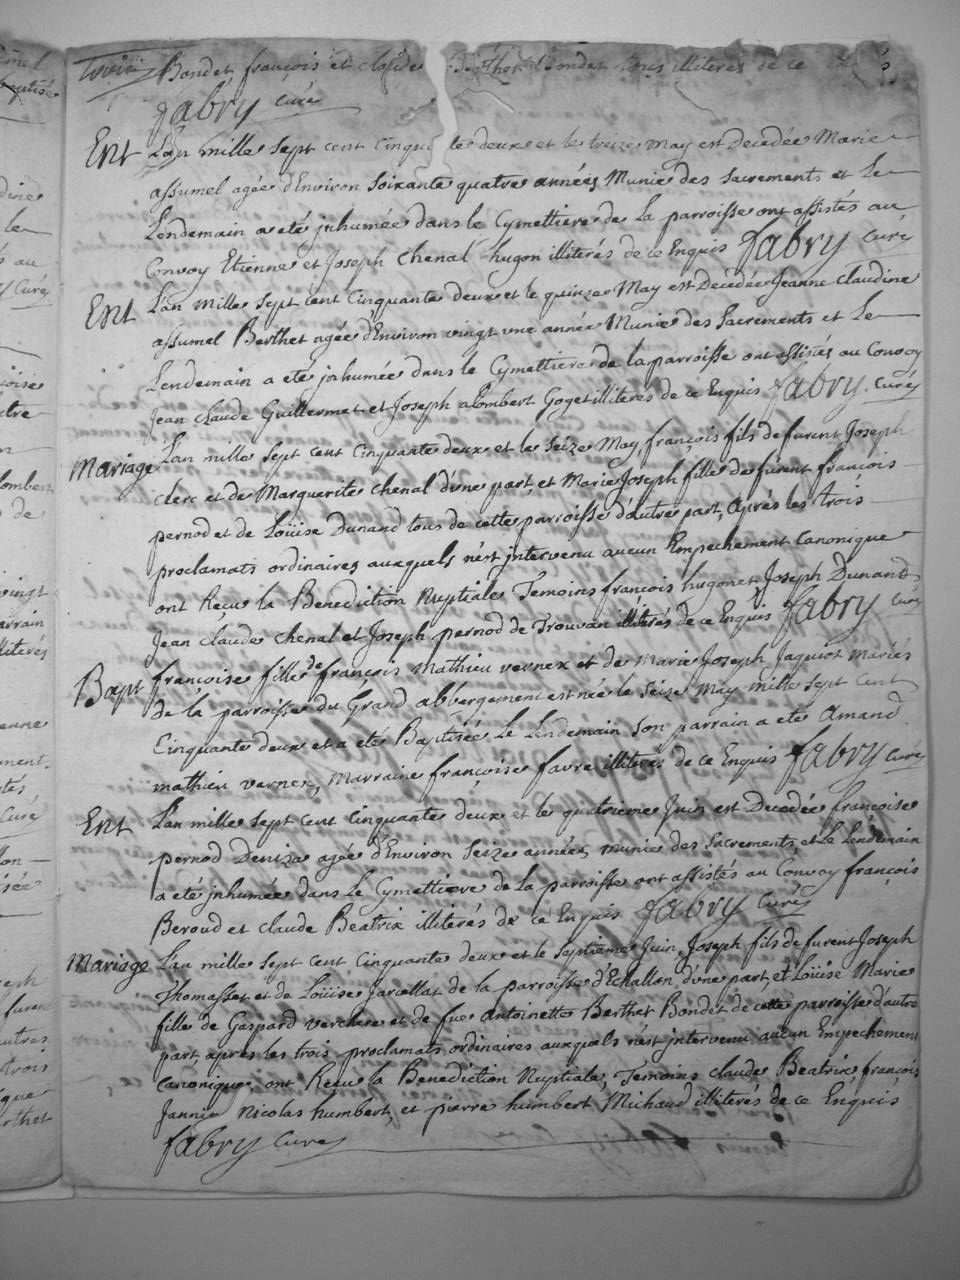 Bondet, françois et claude Berthet Bondet tous illiterés de ce
fabry curé
Ent L'an mille sept cent cinquante deux et le treize may est Decedée Marie
assumel agée d'Environ soixante quatre années Munie des sacrements et Le
Lendemain a eté jnhumée dans le Cymettiere de La parroisse ont assistés au
Convoy Etienne et Joseph chenal hugon illiterés de ce Enquis fabry curé
Ent L'an mille sept cent Cinquante deux et le quinze May est Decedée Jeanne claudine
assumel Berthet agée d'Environ vingt une année Munie des Sacrements et Le
Lendemain a eté jnhumée dans le Cymettiere de la parroisse ont assistés au Convoy
Jean claude Guillermet et Joseph alombert Goget illiterés de ce Enquis fabry curé
Mariage L'an mille sept cent Cinquante deux et le Seize May, françois fils de furent Joseph
clerc et de Marguerite chenal d'une part, et Marie Joseph fille de furent françois
pernod et de Loüise Dunand tous de cette parroisse d'autre part, Aprés les trois
proclamats ordinaires auxquels n'est jntervenu aucun Empechement Canonique
ont Reçu la Benediction Nuptiale Temoins françois hugonet, Joseph Dunand
Jean claude chenal et Joseph pernod de Trouvan illiterés de ce Enquis fabry curé
Bapt francoise fille de françois Mathieu vernex et de Marie Joseph Jaquiot Mariés
de la parroisse du Grand abbergement est née le seize May mille sept cent
Cinquante deux et a eté Baptisée Le Lendemain son parrain a eté Amand
mathieu vernex, Marraine françoise favre illiterés de ce Enquis fabry curé
Ent L'an mille sept cent Cinquante deux et le quatrieme Juin est Decedée françoise
pernod Deniza agée d'Environ Seize années, munie des Sacrements, et Le Lendemain
a eté jnhumée dans Le Cymettiere de La parroisse ont assistés au Convoy françois
Beroud et claude Beatrix illiterés de ce Enquis fabry curé
Mariage L'an mille sept cent Cinquante deux et le Septieme Juin, Joseph fils de furent Joseph
Thomasset et de Loüise Jarcellat de la parroisse d'Echallon d'une part, et Loüise Marie
fille de Gaspard verchere et de fue Antoinette Berthet Bondet de cette parroisse d'autre
part, aprés les trois proclamats ordinaires auxquels n'est jntervenu aucun Empechement
Canonique, ont Reçu la Benediction Nuptiale, Temoins claude Beatrix, françois
Jannin Nicolas humbert, et pierre humbert Michaud illiterés de ce Enquis
fabry curé